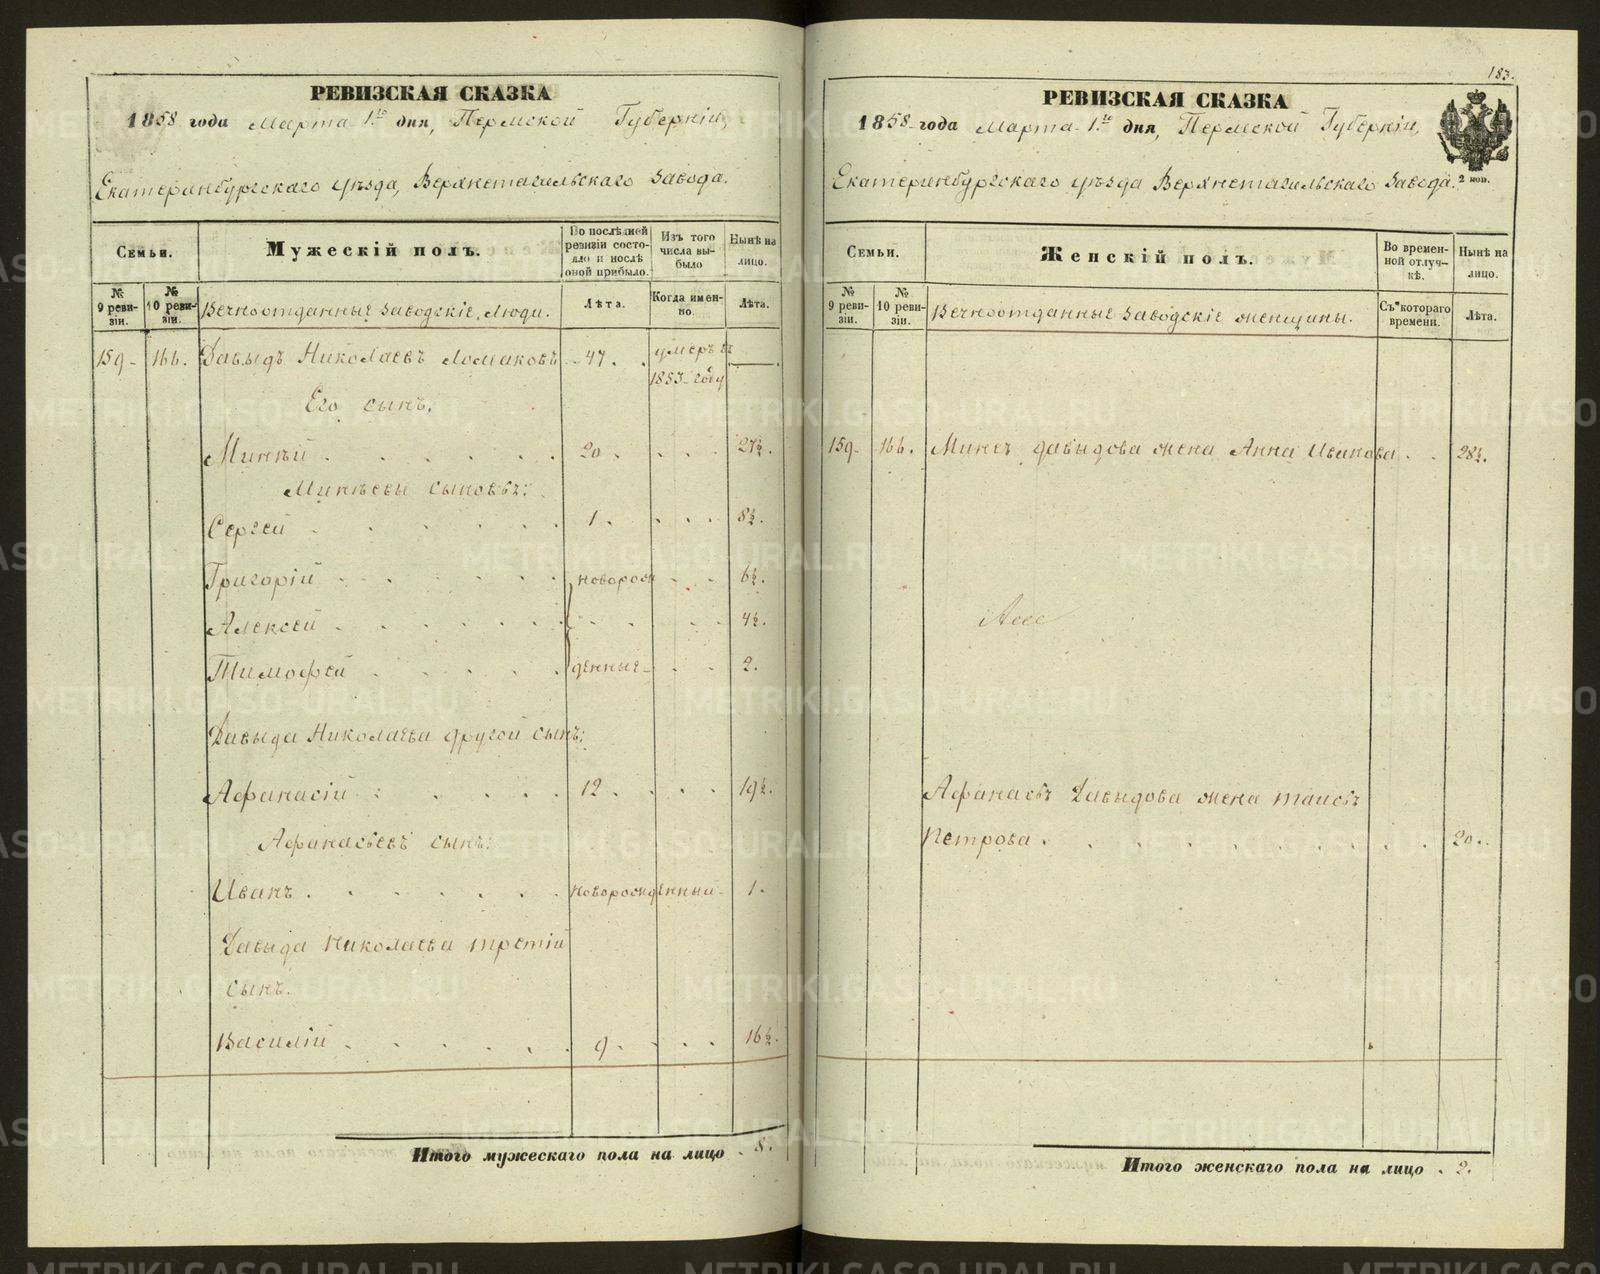 РЕВИЗСКАЯ СКАЗКА
1858 года Марта 1го дня, Пермской Губерніи,
Екатеринбургскаго уѣзда, Верхнетагильскаго Завода.
Семьи.
Мужескій полъ.
По послѣдней ревизіи состояло и послѣ оной прибыло.
Изъ того числа выбыло
Нынѣ на лицо.
№ 9 ревизіи.
№ 10 ревизіи.
Вечноотданные заводскіе люди.
Лѣта.
Когда именно.
Лѣта.
159 166. Давыдъ Николаевъ Ломаковъ 47. умеръ въ 1853 году
Его сынъ:
Минѣй 20 27½.
Минѣевы сыновьѣ:
Сергей 1. 8½.
Григорій новорож 6½.
Алексей 4½.
Тимофей денные 2.
Давыда Николаева другой сынъ:
Афанасій 12. 19½.
Афанасьевъ сынъ:
Иванъ новорожденный 1.
Давыда Николаева третій
сынъ.
Василій 9. 16½.
Итого мужескаго пола на лицо 8.
183.
РЕВИЗСКАЯ СКАЗКА
1858 года Марта 1го дня, Пермской Губерніи,
Екатеринбургскаго уѣзда Верхнетагильскаго Завода.
2 коп.
Семьи.
Женскій полъ.
Во временной отлучкѣ.
Нынѣ на лицо.
№ 9 ревизіи.
№ 10 ревизіи.
Вечноотданные заводскіе женщины.
Съ котораго времени.
Лѣта.
159 166. Минеъ Давыдова жена Анна Иванова 28½.
Афанасьѣ Давыдова жена Таисьѣ
Петрова 20.
Итого женскаго пола на лицо 2.
METRIKI.GASO-URAL.RU